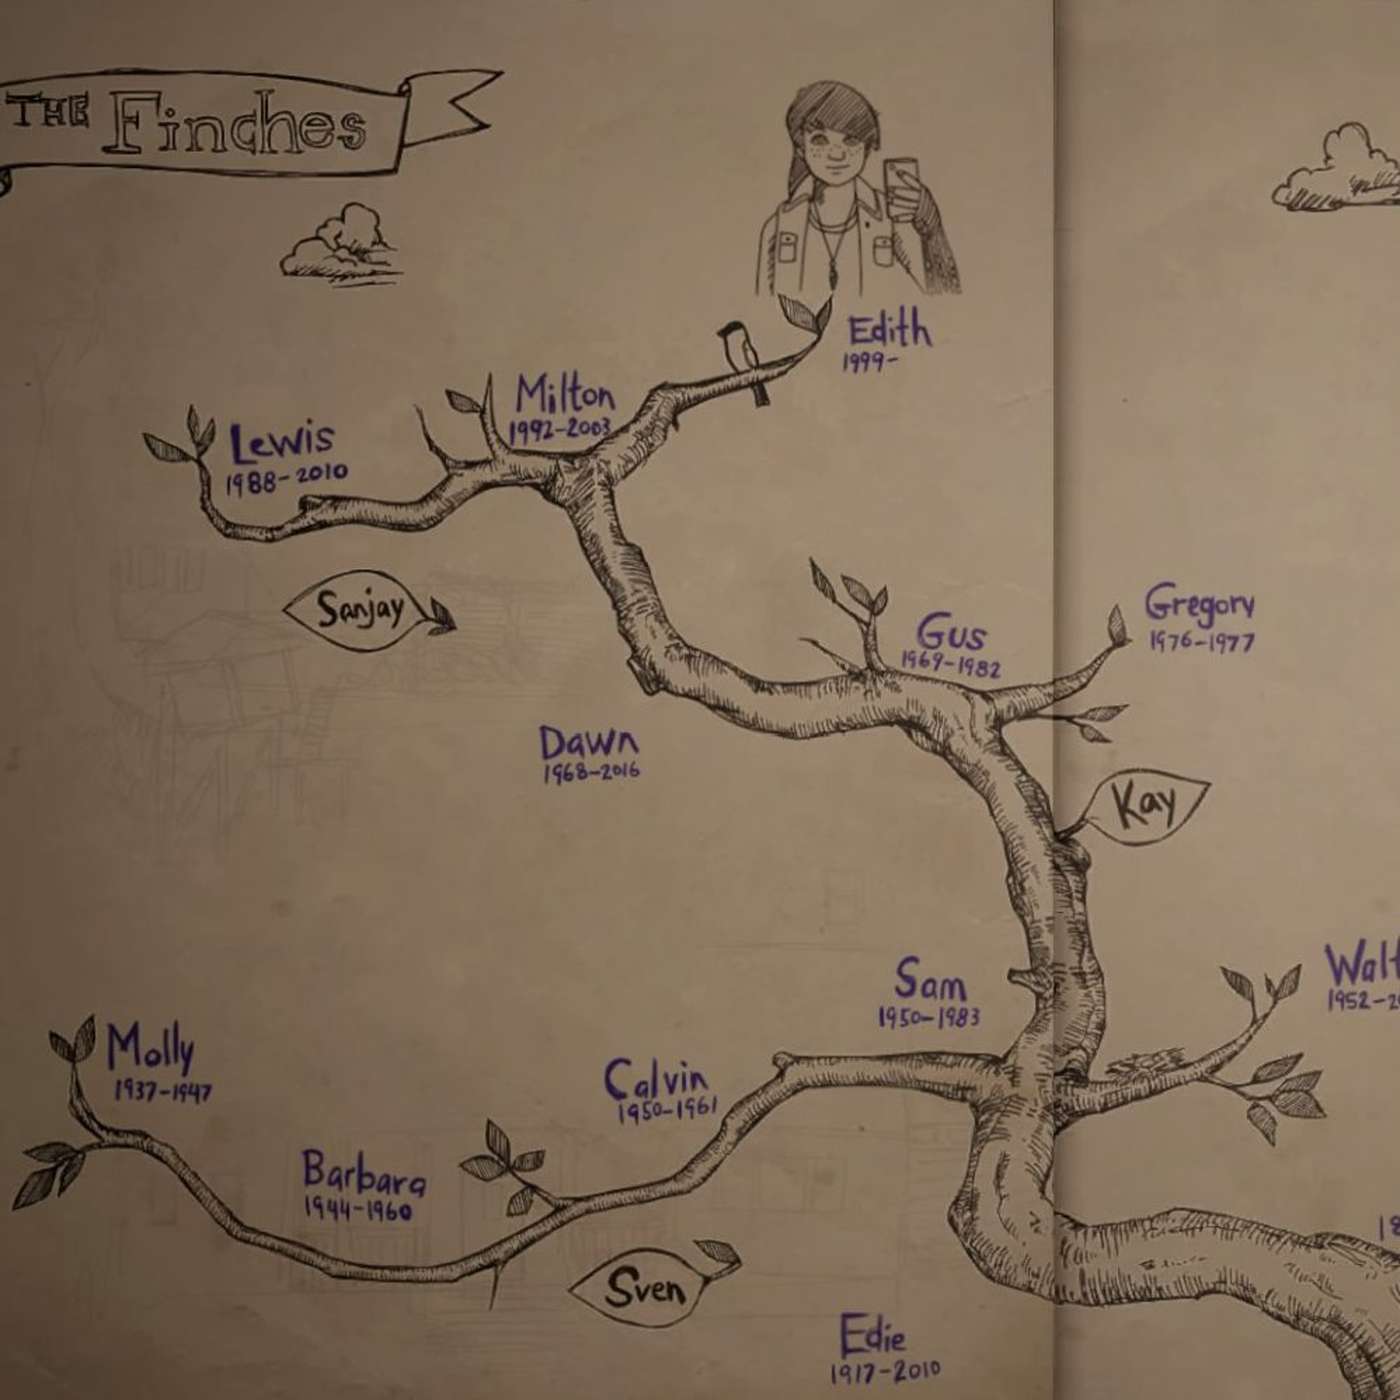 THE Finches
Edith
1999-
Milton
1992-2003
Lewis
1988-2010
Sanjay
Gregory
1976-1977
Gus
1969-1982
Dawn
1968-2016
Kay
Sam
1950-1983
Molly
1937-1947
Calvin
1950-1961
Barbara
1944-1960
Sven
Edie
1917-2010